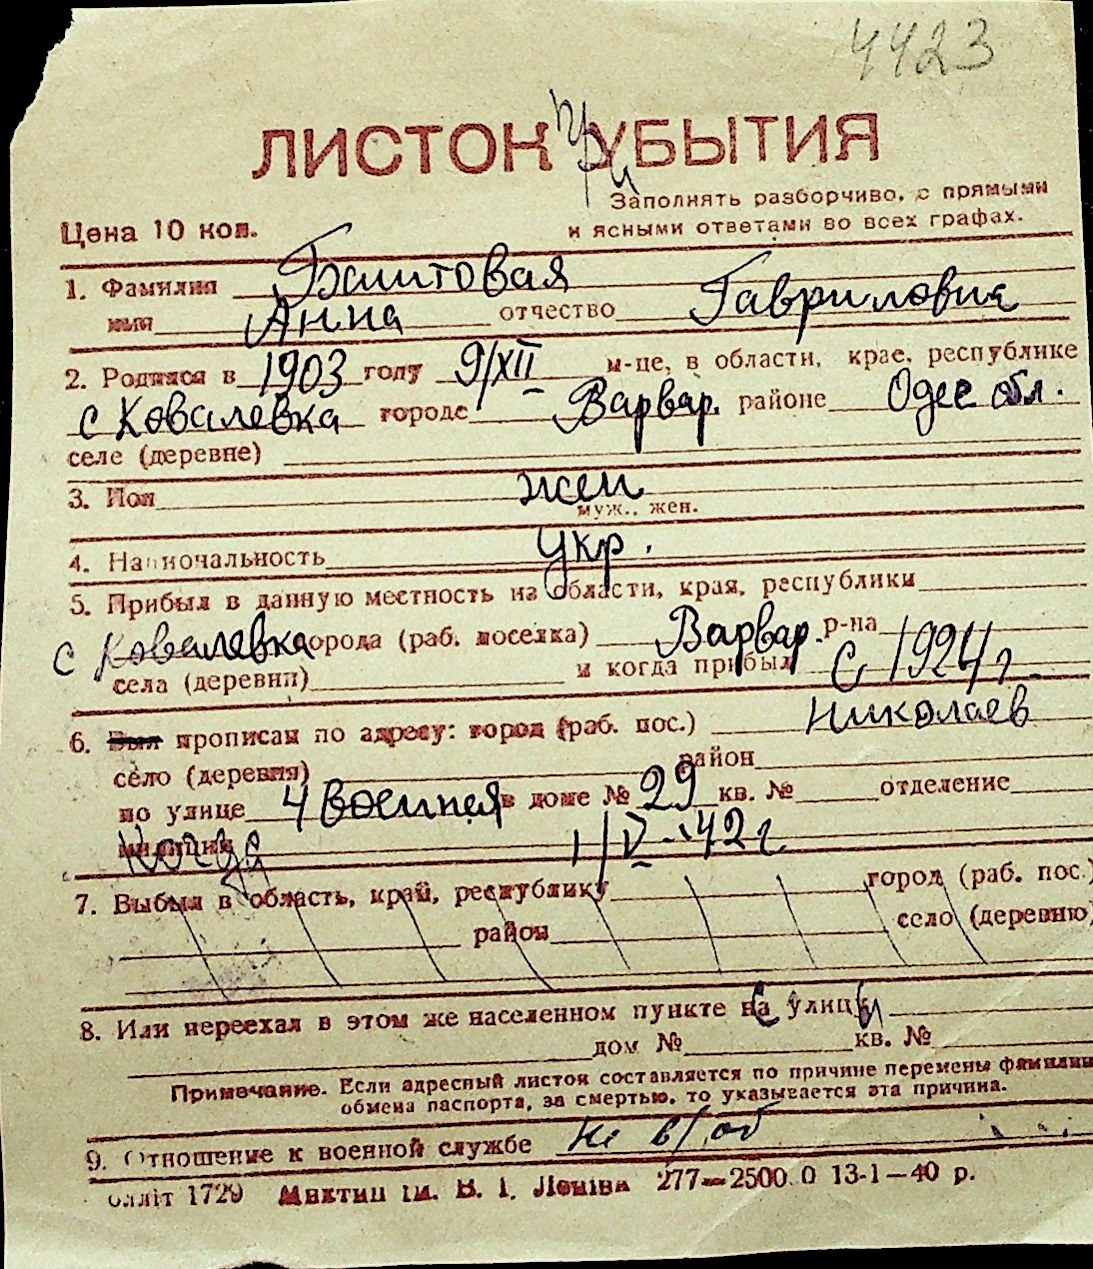 4423
ЛИСТОК при УБЫТИЯ
Заполнять разборчиво, с прямыми
Цена 10 коп. и ясными ответами во всех графах.
1. Фамилия Баштовая
имя Анна отчество Гавриловна
2. Родился в 1903 году 9/XII м-це, в области, крае, республике
с Ковалевка городе Варвар. районе Одес обл.
селе (деревне)
3. Пол жен
муж., жен.
4. Национальность Укр.
5. Прибыл в данную местность из области, края, республики
с Ковалевка города (раб. поселка) Варвар. р-на
села (деревни) и когда прибыл С 1924 г.
6. Был прописан по адресу: город (раб. пос.) Николаев
село (деревня) район
по улице 4 Военная в доме № 29 кв. № отделение
милиции Когда 1/V-42 г.
7. Выбыл в область, край, республику город (раб. пос.)
район село (деревню)
8. Или переехал в этом же населенном пункте на с улицы
дом № кв. №
Примечание. Если адресный листок составляется по причине перемены фамилии
обмена паспорта, за смертью, то указывается эта причина.
9. Отношение к военной службе не в/об
блліт 1729 Миктип ім. В. І. Леніна 277—2500 0 13-1—40 р.